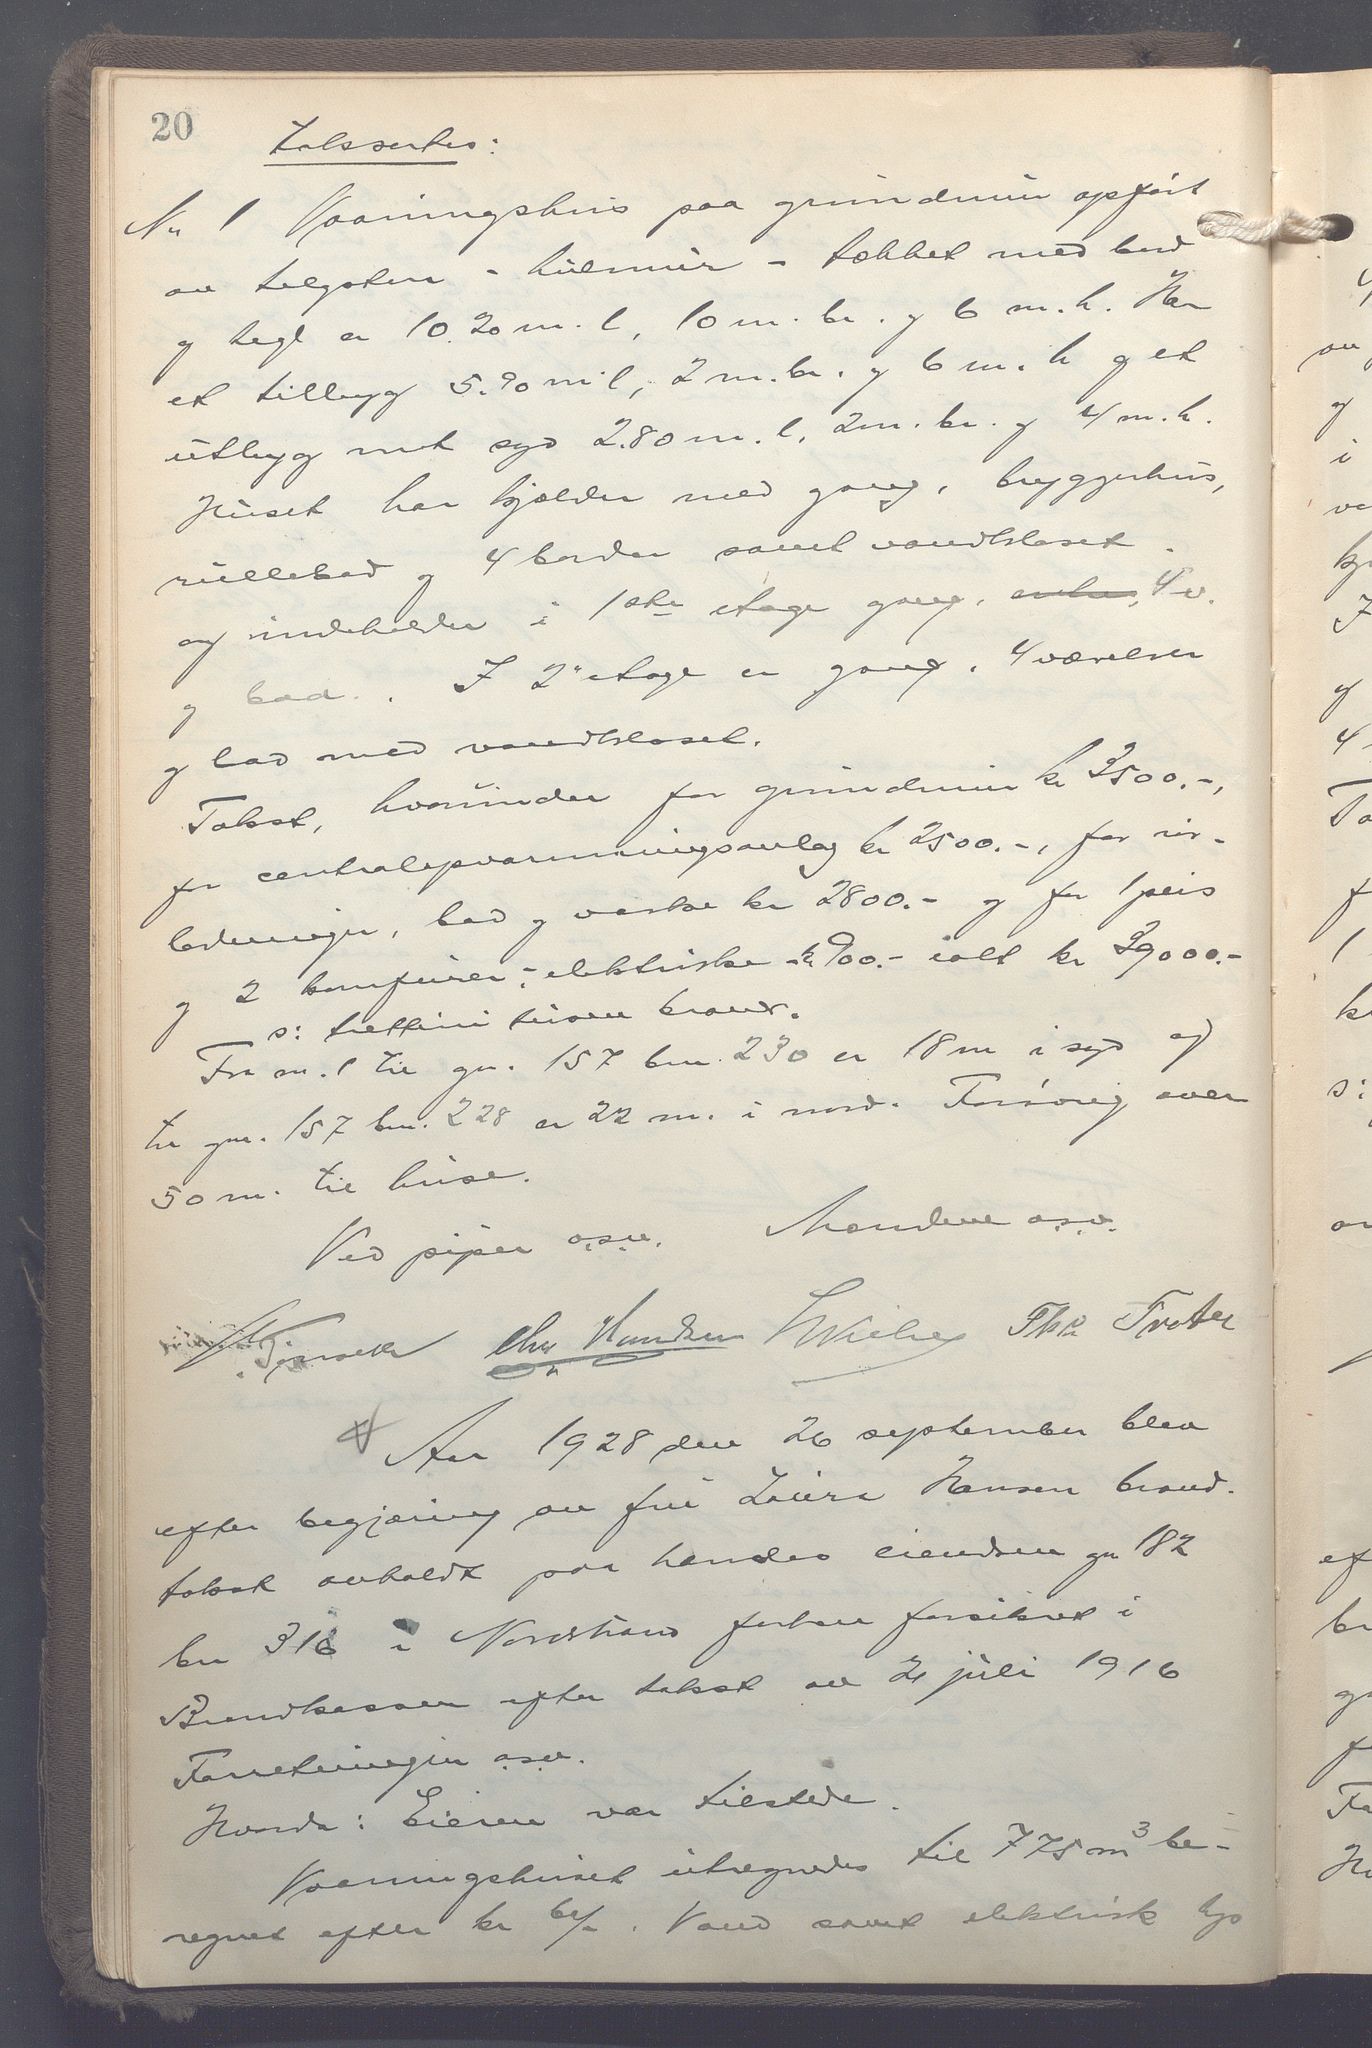 20
Taksertes:
Nr 1 Vaaningshus paa grundmur opført
av teglsten - hulmur - tækket med bord
og tegl er 10.20 m. l, 10 m. br. og 6 m. h. Har
et tilbyg 5.90 m. l, 2 m. br. og 6 m. h og et
utbyg mot syd 2.80 m. l, 2 m. br. og 4 m. h.
Huset har kjælder med gang, bryggerhus,
rullebod og 4 boder samt vandkloset.
og indeholder i 1ste etage gang, 4 v.
og bad. I 2" etage er gang, 4 værelser
og bad med vandkloset.
Takst, hvorunder for grundmur kr 3500.-,
for centralopvarmningsanlæg kr 2500.-, for rør-
ledninger, bad og vaske kr 2800.- og for 1 peis
og 2 komfurer - elektriske - kr 900.- ialt kr 39000.-
s: trettini tusen kroner.
Fra nr. 1 til gn. 157 bn. 230 er 18 m i syd og
til gnr. 157 bn. 228 er 22 m. i nord. Forøvrig over
50 m. til huse.
Ved piper o.s.v. Mændene o.s.v.
Chr Knudsen Thv Tveter
Aar 1928 den 26 september blev
efter begjæring av fru Laura Hansen brand-
takst avholdt paa hendes eiendom gn 182
bn 316 i Nordstrand forhen forsikret i
Brandkassen efter takst av 21 juli 1916
Forretningen o.s.v.
Hvorda: Eieren var tilstede.
Vaaningshuset utregnedes til 775 m3 be-
regnet efter kr 61/-. Vand samt elektrisk lys